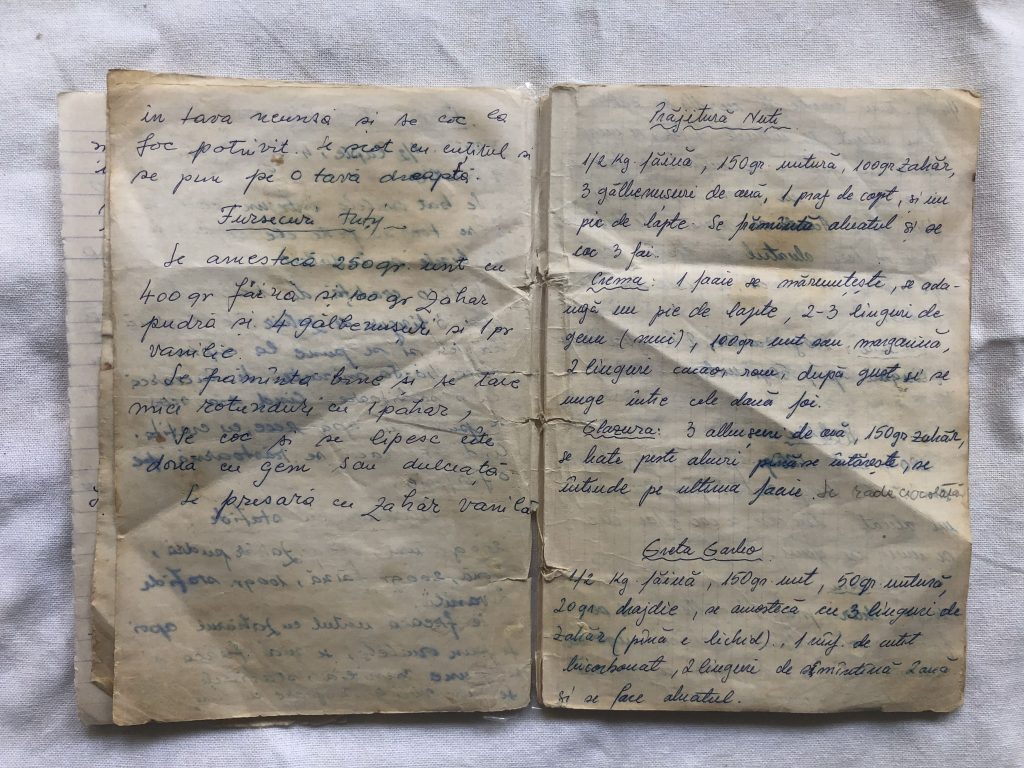 în tava neunsă și se coc la
foc potrivit. Se scot cu cuțitul și
se pun pe o tavă dreaptă.
Fursecuri Tuty
Se amestecă 250gr. unt cu
400 gr făină si 100 gr zahar
pudră si 4 gălbenușuri si 1 pr
vanilie.
Se frămînta bine și se taie
mici rotunduri cu 1 păhar,
Ve coc și se lipesc cîte
două cu gem sau dulceață
Se presară cu zahăr vanila
Prăjitură Nuți
1/2 Kg făină, 150gr untură, 100gr zahăr,
3 gălbenușuri de ouă, 1 praf de copt, și un
pic de lapte. Se frămîntă aluatul și se
coc 3 foi.
Crema: 1 foaie se mărunțește, se ada-
ugă un pic de lapte, 2-3 linguri de
gem (nuci), 100gr unt sau margarină,
2 linguri cacao, rom, după gust și se
unge între cele două foi.
Glazura: 3 albușuri de ouă, 150gr zahăr,
se bate peste aburi pînă se întărește se
întinde pe ultima foaie. Se rade ciocolată
Greta Garbo
1/2 Kg făină, 150gr unt, 50gr untură,
20gr drojdie, se amestecă cu 3 linguri de
zahăr (pînă e lichid), 1 vîrf. de cutit
bicorbonat, 2 linguri de smîntînă 2 ouă
și se face aluatul.